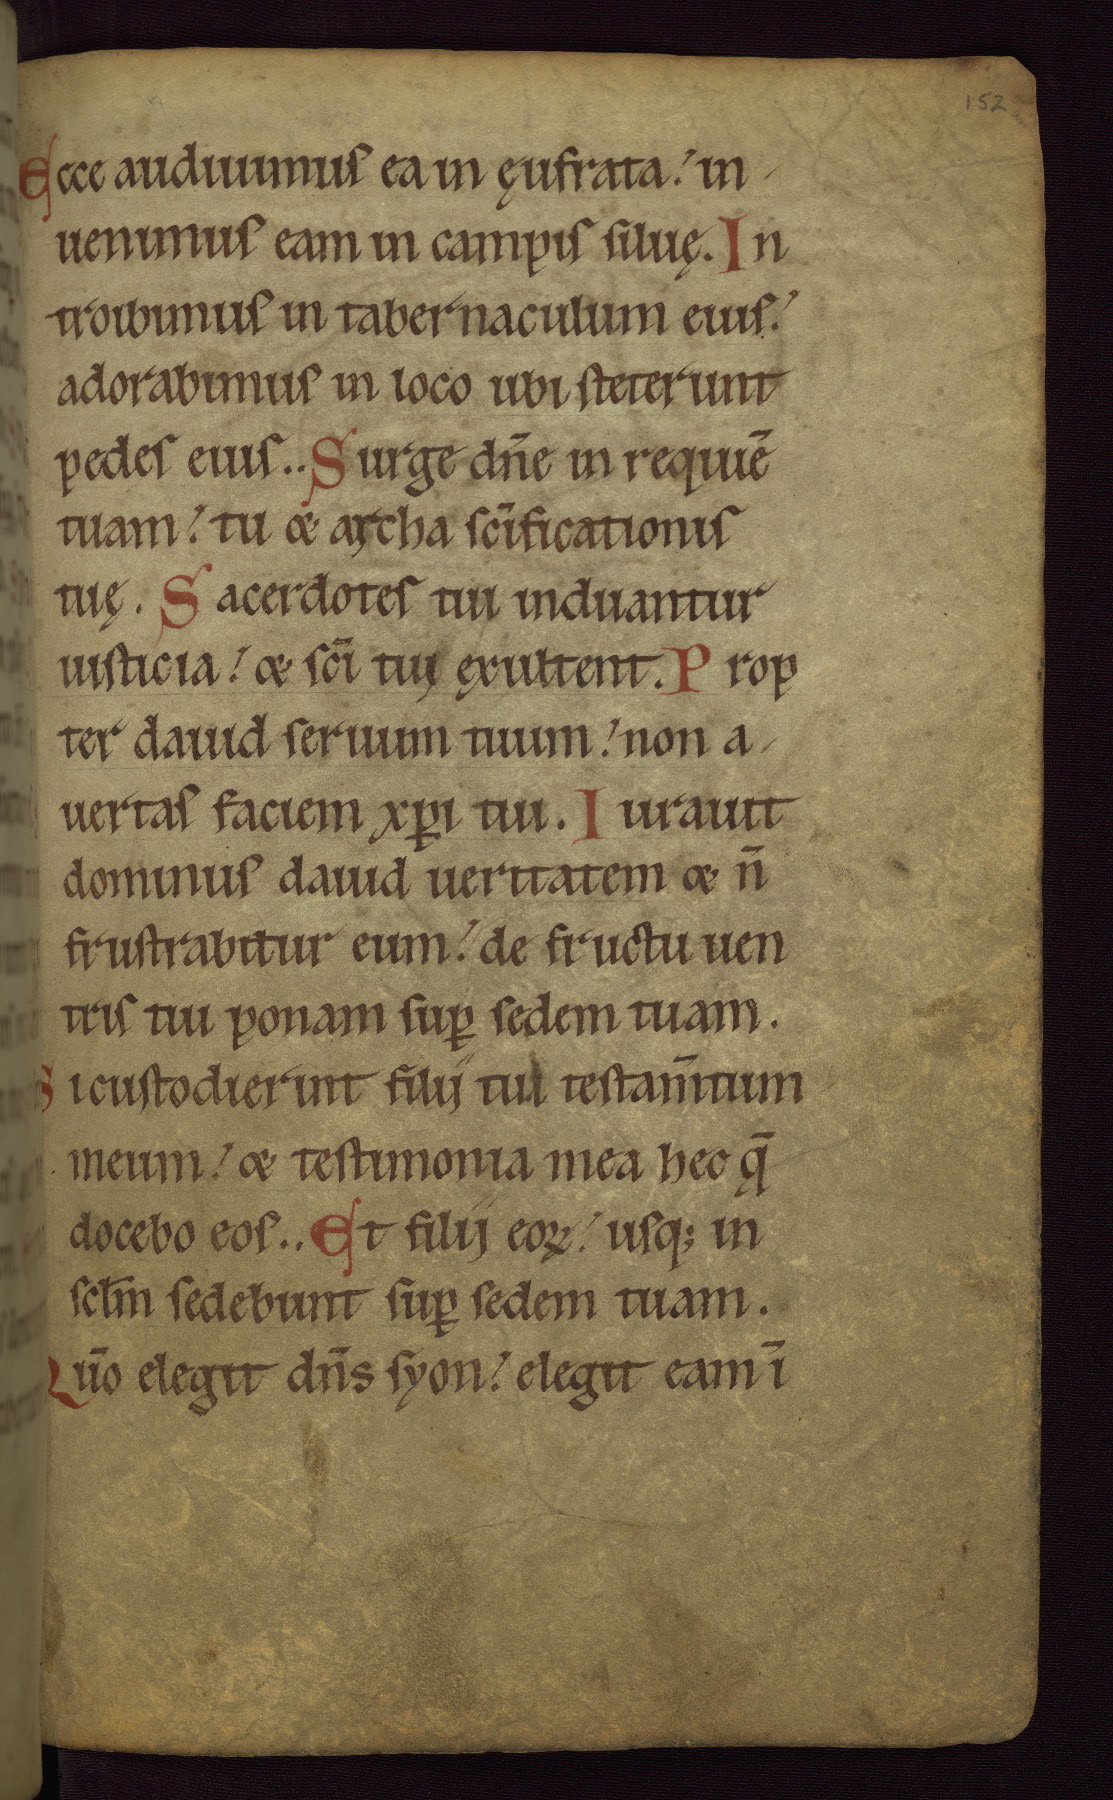 152
Ecce audiuimus ea in ęufrata: in-
uenimus eam in campis siluę. In
troibimus in tabernaculum eius:
adorabimus in loco ubi steterunt
pedes eius.. Surge dn̄e in requiē
tuam: tu & archa sc̄ificationis
tuę. Sacerdotes tui induantur
iusticia: & sc̄i tuij ęxultent. Prop
ter dauid seruum tuum: non a-
uertas faciem xp̄i tui. Iurauit
dominus dauid ueritatem & n̄
frustrabitur eum: de fructu uen
tris tui ponam sup̄ sedem tuam.
Si custodierint filij tui testam̄tum
meum: & testimonia mea hec q̄
docebo eos.. Et filij eoꝝ: usq; in
scl̄m sedebunt sup̄ sedem tuam.
Qūo elegit dn̄s syon: elegit eam ī